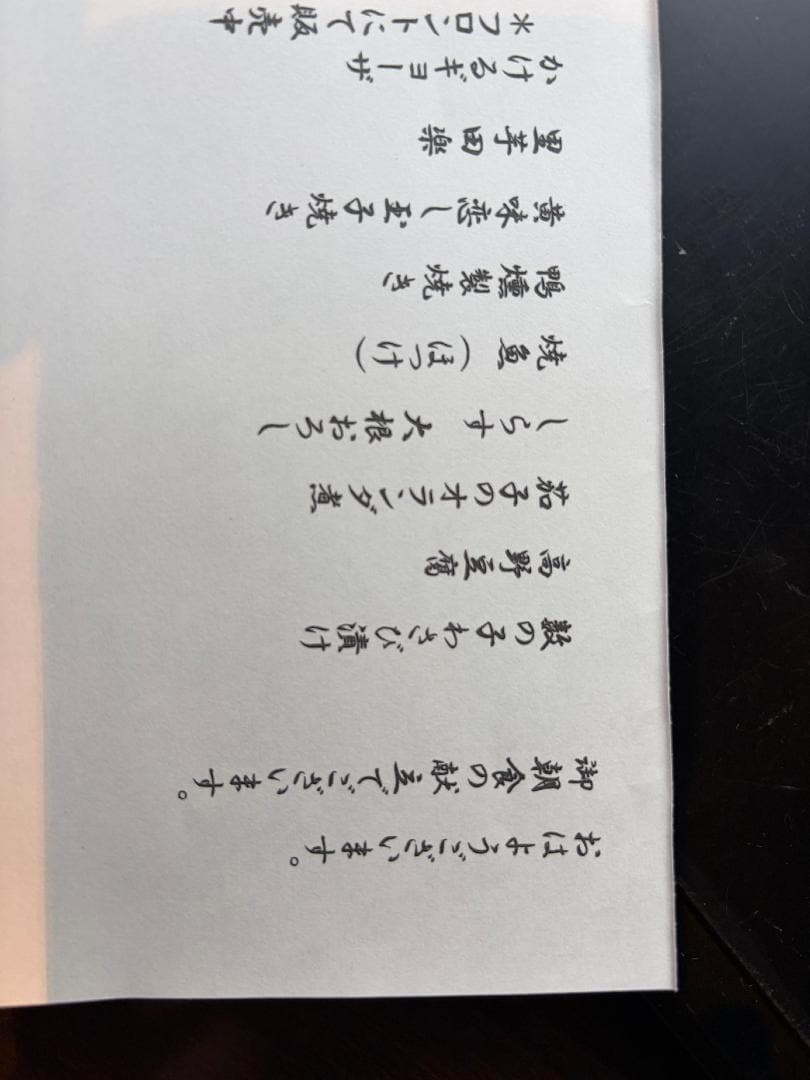 おはようございます。
御朝食の献立でございます。
数の子わさび漬け
高野豆腐
茄子のオランダ煮
しらす 大根おろし
焼魚(ほっけ)
鴨燻製焼き
黄味恋し玉子焼き
里芋田楽
かけるギョーザ
*フロントにて販売中